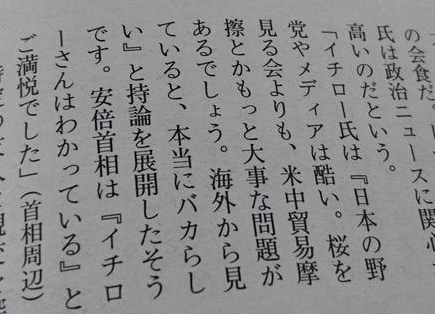 の会食だ。
氏は政治ニュースに関心
高いのだという。
「イチロー氏は『日本の野
党やメディアは酷い。桜を
見る会よりも、米中貿易摩
擦とかもっと大事な問題が
あるでしょう。海外から見
ていると、本当にバカらし
い』と持論を展開したそう
です。安倍首相は『イチロ
ーさんはわかっている』と
ご満悦でした」（首相周辺）